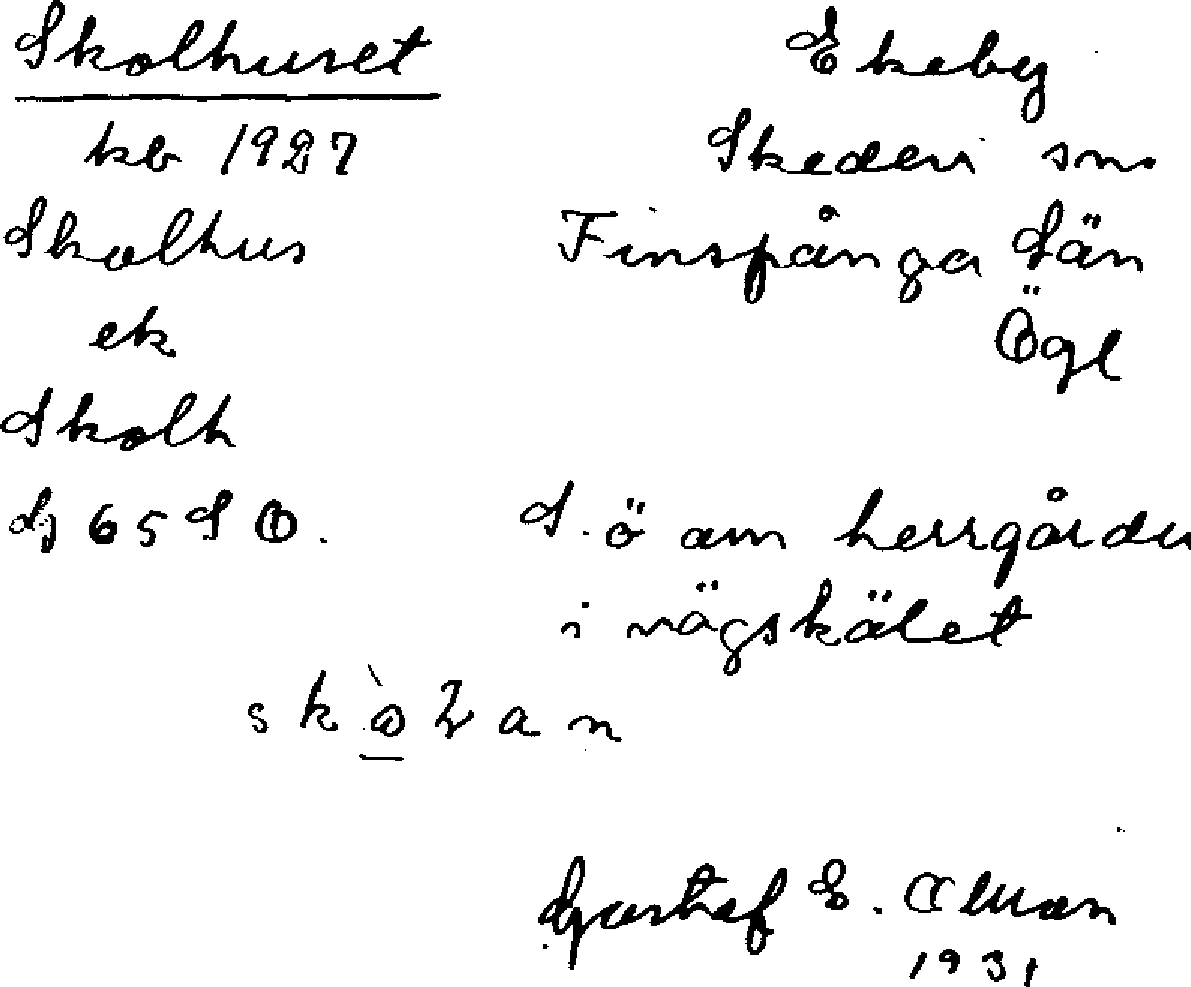 Skolhuset
kb 1927
Skolhus
ek
Skolh
Gj 65 S O.
Ekeby
Skedevi sn.
Finspånga län
Ögl
S.ö om herrgården
i vägskälet
skò̠ɫan
Gustaf E. Alman
1931